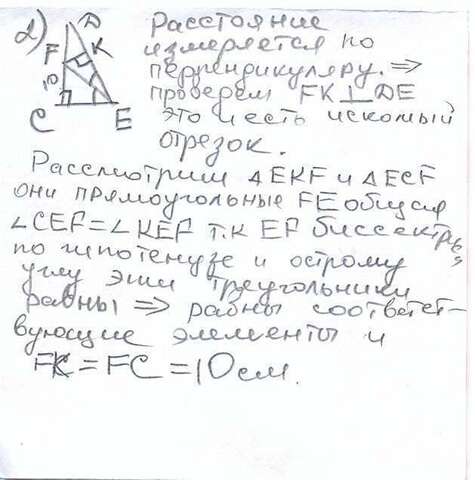 2) D Расстояние
F K измеряется по
10 перпендикуляру. ⇒
проведем FK⊥DE
C E это и есть искомый
отрезок.
Рассмотрим △EKF и △ECF
они прямоугольные FE общая
∠CEF=∠KEF т.к EF биссектриса,
по гипотенузе и острому
углу эти треугольники
равны ⇒ равны соответст-
вующие элементы и
FK=FC=10см.